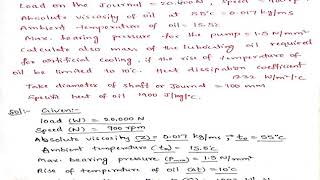 Load on the Journal = 20,000 N, Speed = 900 rpm
Absolute viscosity of oil at 55°C = 0.017 kg/ms
Ambient temperature of oil = 15.5°C
Max. bearing pressure for the pump = 1.5 N/mm²
Calculate also mass of the lubricating oil required
for artificial cooling, if the rise of temperature of
oil be limited to 10°C. Heat dissipation coefficient
1232 W/m²/°C
Take diameter of shaft or Journal = 100 mm
Specific heat of oil 1900 J/kg/°C.
Sol:- Given:-
load (W) = 20,000 N
Speed (N) = 900 rpm
Absolute viscosity (Z) = 0.017 kg/ms, t₀ = 55°C
Ambient temperature (ta) = 15.5°C
Max. bearing pressure = 1.5 N/mm²
Rise of temperature of oil (Δt) = 10°C